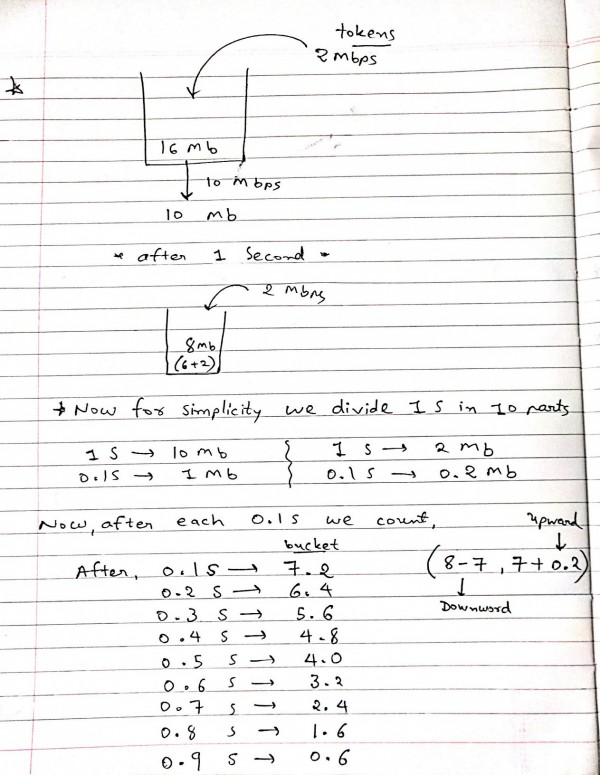 tokens
2 mbps
16 mb
10 mbps
10 mb
* after 1 second *
2 mbps
8mb
(6+2)
* Now for simplicity we divide 1 S in 10 parts
1 S → 10 mb } 1 S → 2 mb
0.1S → 1 mb } 0.1 S → 0.2 mb
Now, after each 0.1 S we count,
upward
bucket
After, 0.1 S → 7.2 (8-7, 7+0.2)
0.2 S → 6.4 Downword
0.3 S → 5.6
0.4 S → 4.8
0.5 S → 4.0
0.6 S → 3.2
0.7 S → 2.4
0.8 S → 1.6
0.9 S → 0.6